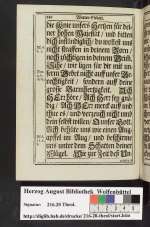 die Knie unsers Hertzen für dei-
ner hohen Majestät / und bitten
dich inständiglich / du wollest uns
nicht straffen in deinem Zorn /
noch züchtigen in deinem Grimm.
Siehe / wir ligen für dir mit un-
serm Gebet nicht auf unser Ge-
rechtigkeit / sondern auf deine
grosse Barmhertzigkeit. Ach
HErr höre / Ach HErr sey gnä-
dig / Ach HErr mercke auf und
thue es / und verzeuch nicht um
dein selbst willen / Unser Gott.
Ach behüte uns wie einen Aug-
apffel im Aug / und beschirme
uns unter dem Schatten deiner
Flügel.
Herzog August Bibliothek Wolfenbüttel
Signatur 216.29 Theol.
http://diglib.hab.de/drucke/216-29-theol/start.htm